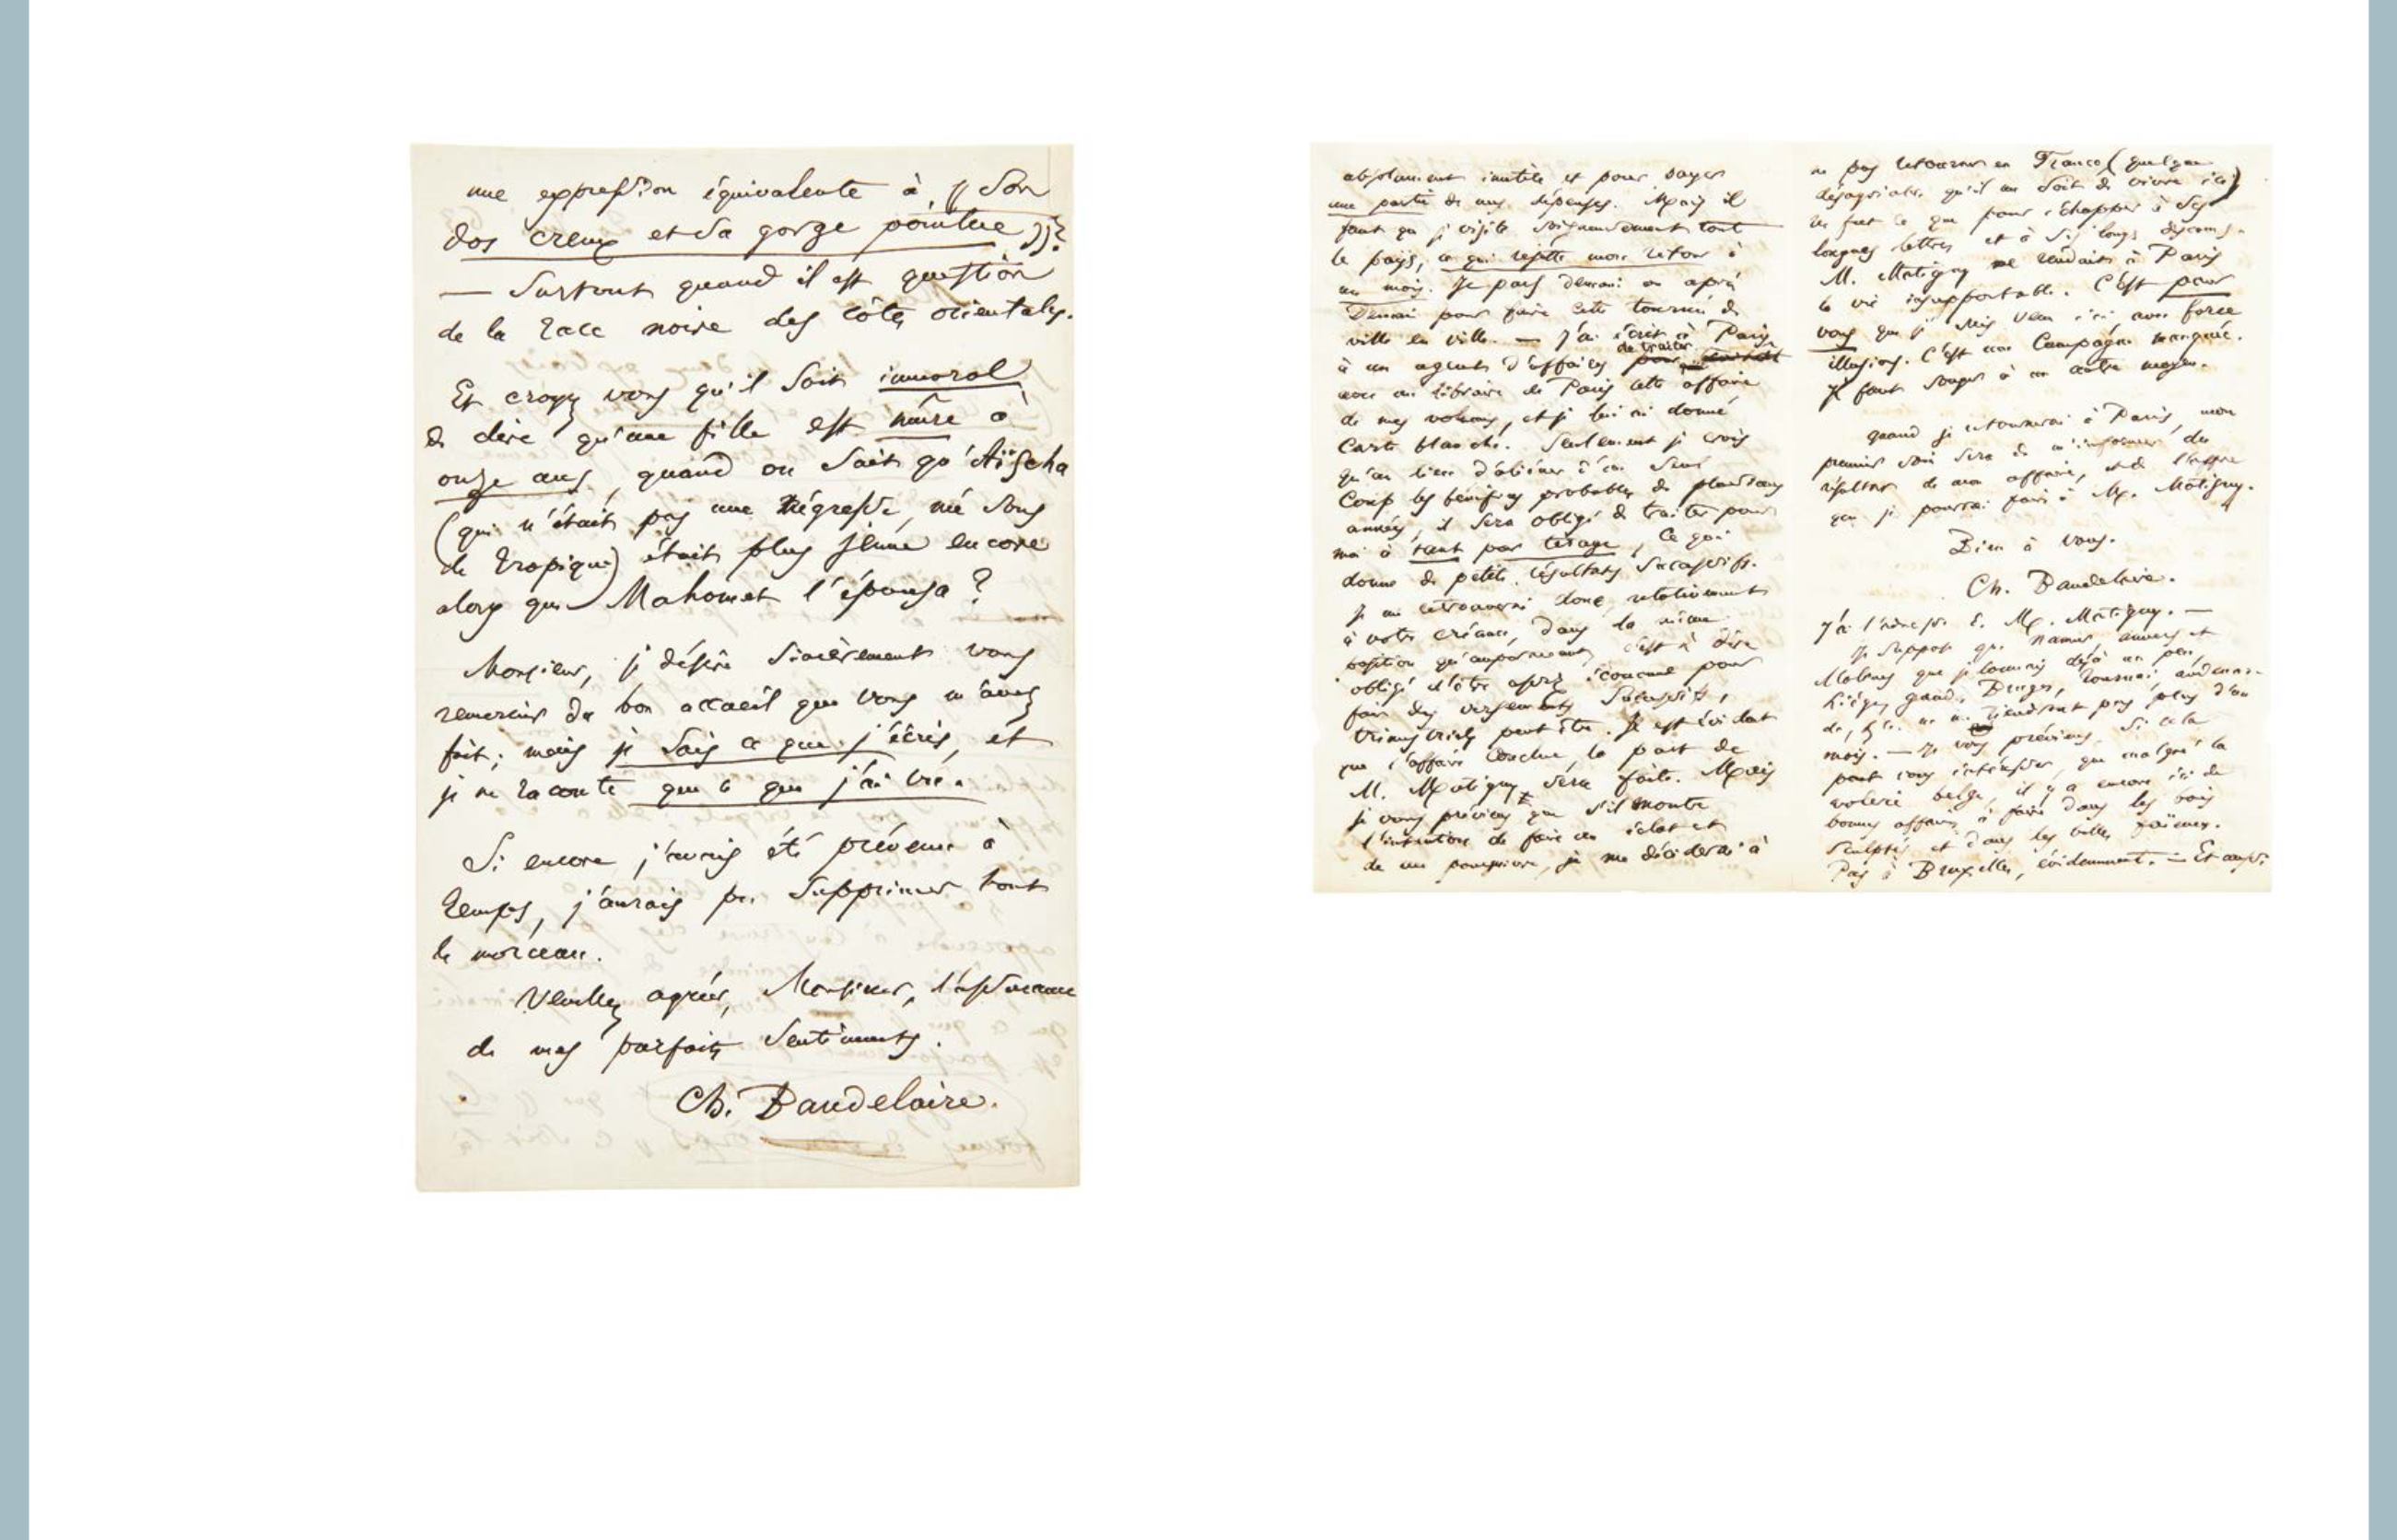 une expression équivalente à « son
dos creux et sa gorge pointue »?
— Surtout quand il est question
de la race noire des côtes orientales.
Et croyez vous qu'il soit immoral
de dire qu'une fille est mûre à
onze ans, quand on sait qu'Aïscha
(qui n'était pas une négresse née sous
le tropique) était plus jeune encore
alors que Mahomet l'épousa ?
Monsieur, je désire sincèrement vous
remercier du bon accueil que vous m'avez
fait ; mais je sais ce que j'écris, et
je ne raconte que ce que j'ai vu.
Si encore j'avais été prévenu à
temps, j'aurais pu supprimer tout
le morceau.
Veuillez agréer, Monsieur, l'assurance
de mes parfaits sentiments.
Ch. Baudelaire.
absolument inutile et pour payer
une partie de mes dépenses. Mais il
faut que je visite soigneusement tout
le pays, ce qui rejette mon retour à
un mois. Je pars demain ou après
Demain pour faire cette tournée de
ville en ville. — J'ai écrit à Paris
à un agent d'affaires de traiter
avec un libraire de Paris cette affaire
de mes volumes, et je lui ai donné
Carte blanche. Seulement je crois
qu'au lieu d'aliéner d'un seul
Coup les bénéfices probables de plusieurs
années, il sera obligé de traiter pour
moi à tant par tirage, ce qui
donne de petits résultats successifs.
Je me retrouverai donc, relativement
à votre créance, dans la même
position qu'auparavant, c'est à dire
obligé d'être assez économe pour
faire des versements successifs,
trimestriels peut être. Il est évident
que l'affaire conclue, la part de
M. Matigny sera faite. Mais
je vous préviens que s'il montre
l'intention de faire un éclat et
de me poursuivre, je me déciderai à
ne pas retourner en France (quelque
désagréable qu'il me soit de vivre ici)
ne fût ce que pour échapper à ses
longues lettres et à ses longs discours.
M. Matigny me rendait à Paris
la vie insupportable. C'est pour
vous que je suis venu ici, avec force
illusions. C'est une Campagne manquée.
Il faut songer à un autre moyen.
quand je retournerai à Paris, mon
premier soin sera de m'informer du
résultat de mon affaire, et de l'offre
que je pourrai faire à M. Matigny.
Bien à vous.
Ch. Baudelaire.
J'ai l'adresse de M. Matigny. —
Je suppose que Namur, anvers et
Malines que je connais déjà un peu,
Liège, gand, Bruges, Tournai, audenar-
de, &c. ne me tiendront pas plus d'un
mois. — Je vous préviens, si cela
peut vous intéresser, que malgré la
volerie belge, il y a encore ici de
bonnes affaires à faire dans les bois
sculptés et dans les belles faïences.
Pas à Bruxelles, évidemment. — Et aussi